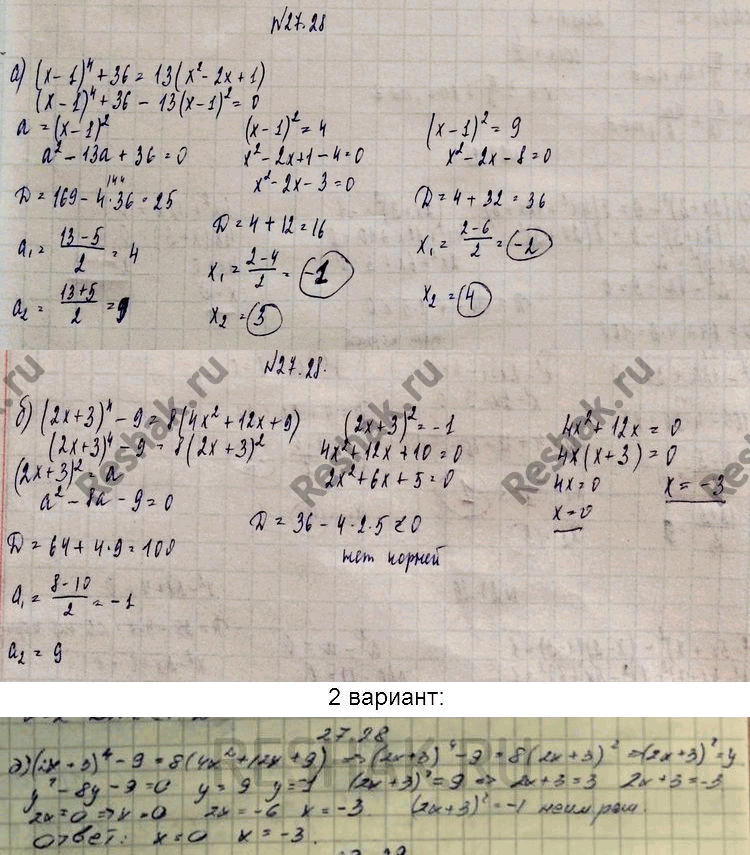 №27.28
а) (x-1)⁴+36=13(x²-2x+1)
(x-1)⁴+36-13(x-1)²=0
a=(x-1)²
a²-13a+36=0
144
D=169-4·36=25
a₁=(13-5)/2=4
a₂=(13+5)/2=9
(x-1)²=4
x²-2x+1-4=0
x²-2x-3=0
D=4+12=16
x₁=(2-4)/2=-1
x₂=3
(x-1)²=9
x²-2x-8=0
D=4+32=36
x₁=(2-6)/2=-2
x₂=4
№27.28.
б) (2x+3)⁴-9=8(4x²+12x+9)
(2x+3)⁴-9=8(2x+3)²
(2x+3)²=a
a²-8a-9=0
D=64+4·9=100
a₁=(8-10)/2=-1
a₂=9
(2x+3)²=-1
4x²+12x+10=0
2x²+6x+5=0
D=36-4·2·5<0
нет корней
4x²+12x=0
4x(x+3)=0
4x=0 x=-3
x=0
Reshak.ru
Reshak.ru
Reshak.ru
2 вариант:
27.28
(2x+3)⁴-9=8(4x²+12x+9) => (2x+3)⁴-9=8(2x+3)² => (2x+3)²=y
y²-8y-9=0 y=9 y=-1 (2x+3)²=9 => 2x+3=3 2x+3=-3
2x=0 => x=0 2x=-6 x=-3. (2x+3)²=-1 не им. реш.
Ответ: x=0 x=-3.